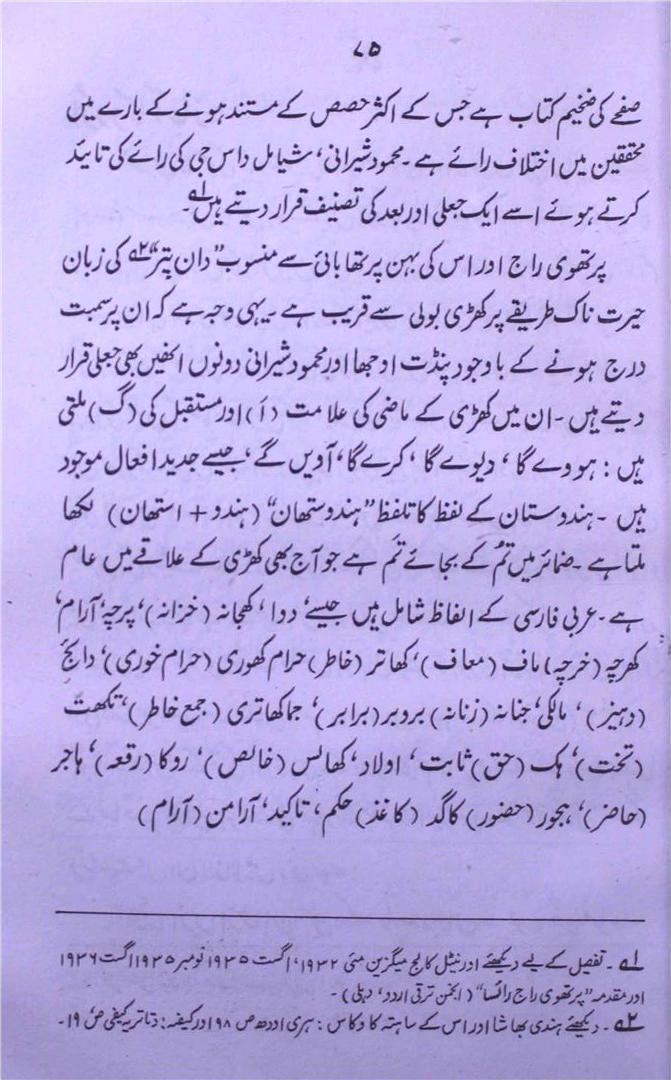 ۷۵
صفحے کی ضخیم کتاب ہے جس کے اکثر حصص کے مستند ہونے کے بارے میں
محققین میں اختلاف رائے ہے ۔ محمود شیرانی، شیامل داس جی کی رائے کی تائید
کرتے ہوئے اسے ایک جعلی اور بعد کی تصنیف قرار دیتے ہیں ۱ے۔
پرتھوی راج اور اس کی بہن پرتھا بائی سے منسوب "دان پتر" ۲ے کی زبان
حیرت ناک طریقے پر کھڑی بولی سے قریب ہے ۔ یہی وجہ ہے کہ ان پر سمبت
درج ہونے کے باوجود پنڈت اوجھا اور محمود شیرانی دونوں انھیں بھی جعلی قرار
دیتے ہیں ۔ ان میں کھڑی کے ماضی کی علامت (اَ) اور مستقبل کی (گ) ملتی
ہیں : ہووے گا ، دیوے گا ، کرے گا، آویں گے، جیسے جدید افعال موجود
ہیں ۔ ہندوستان کے لفظ کا تلفظ "ہندوستھان" (ہندو + استھان) لکھا
ملتا ہے ۔ ضمائر میں تُم کے بجائے تَم ہے جو آج بھی کھڑی کے علاقے میں عام
ہے ۔ عربی فارسی کے الفاظ شامل ہیں جیسے، دوا ، کھجانہ (خزانہ)، پرچہ، آرام،
کھرچہ (خرچہ) ماف (معاف)، کھاتر (خاطر) حرام کھوری (حرام خوری)، دائج
(دہیز) ، مالکی، جنانہ (زنانہ) بروبر (برابر)، جما کھاتری (جمع خاطر)، تکھت
(تخت)، ہک (حق) ثابت ، اولاد، کھالس (خالص)، روکا (رقعہ)، ہاجر
(حاضر)، ہجور (حضور) کاگد (کاغذ) حکم، تاکید، آرامن (آرام)
۱ے ۔ تفصیل کے لیے دیکھئے اورنیٹل کالج میگزین مئی ۱۹۳۲ء، اگست ۱۹۳۵ نومبر ۱۹۳۵ اگست ۱۹۳۶
اور مقدمہ "پرتھوی راج راسا" (انجمن ترقی اردو، دہلی) ۔
۲ے ۔ دیکھئے ہندی بھاشا اور اس کے ساہتہ کا وکاس : ہری اودھ ص ۹۸ اور کیفیہ : دتاتریہ کیفی ص، ۱۹ ۔